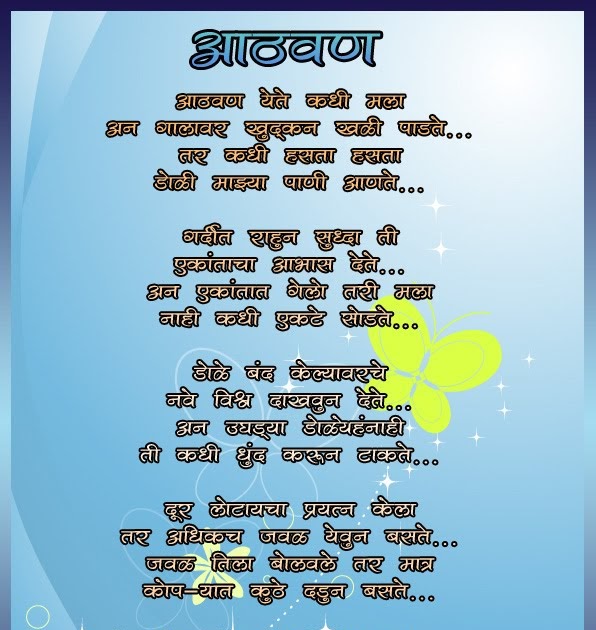 आठवण
आठवण येते कधी मला
अन गालावर खुद्कन खळी पाडते...
तर कधी हसता हसता
डोळी माझ्या पाणी आणते...
गर्दीत राहुन सुध्दा ती
एकांताचा आभास देते...
अन एकांतात गेलो तरी मला
नाही कधी एकटे सोडते...
डोळे बंद केल्यावरचे
नवे विश्व दाखवुन देते...
अन उघड्या डोळेयहंनाही
ती कधी धुंद करून टाकते...
दूर लोटायचा प्रयत्न केला
तर अधिकच जवळ येवुन बसते...
जवळ तिला बोलवले तर मात्र
कोप-यात कुठे दडुन बसते...